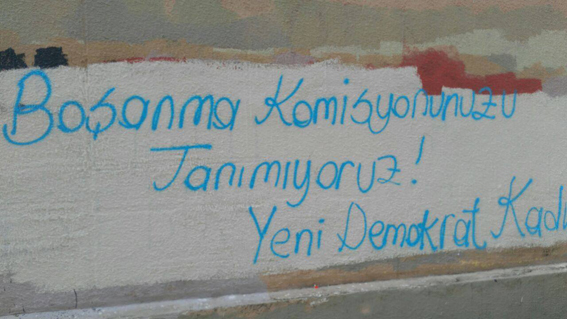 Boşanma Komisyonunuzu
Tanımıyoruz!
Yeni Demokrat Kadı